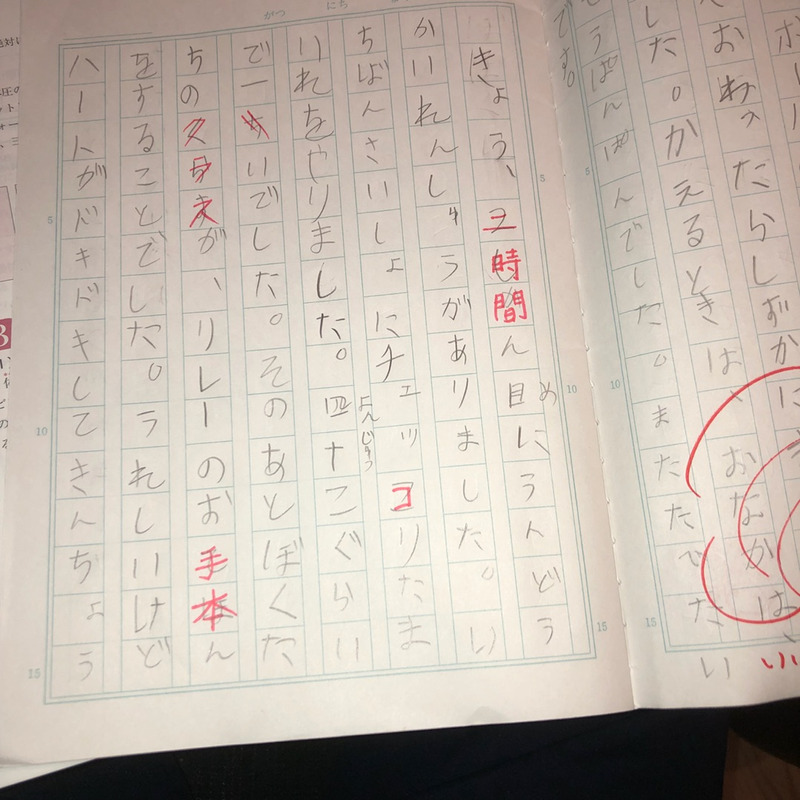 おわったらしずかに
した。かえるときは、おなかは、
うぱんぱんでした。またたでたい
です。
がつ　にち
きょう、二時間ん目にうんどう
かいれんしゅうがありました。い
ちばんさいしょにチェッコりたま
いれをやりました。四十こぐらい
で一いでした。そのあとぼくた
ちのが、リレーのお手本ん
をすることでした。うれしいけど
ハートがドキドキしてきんちょう